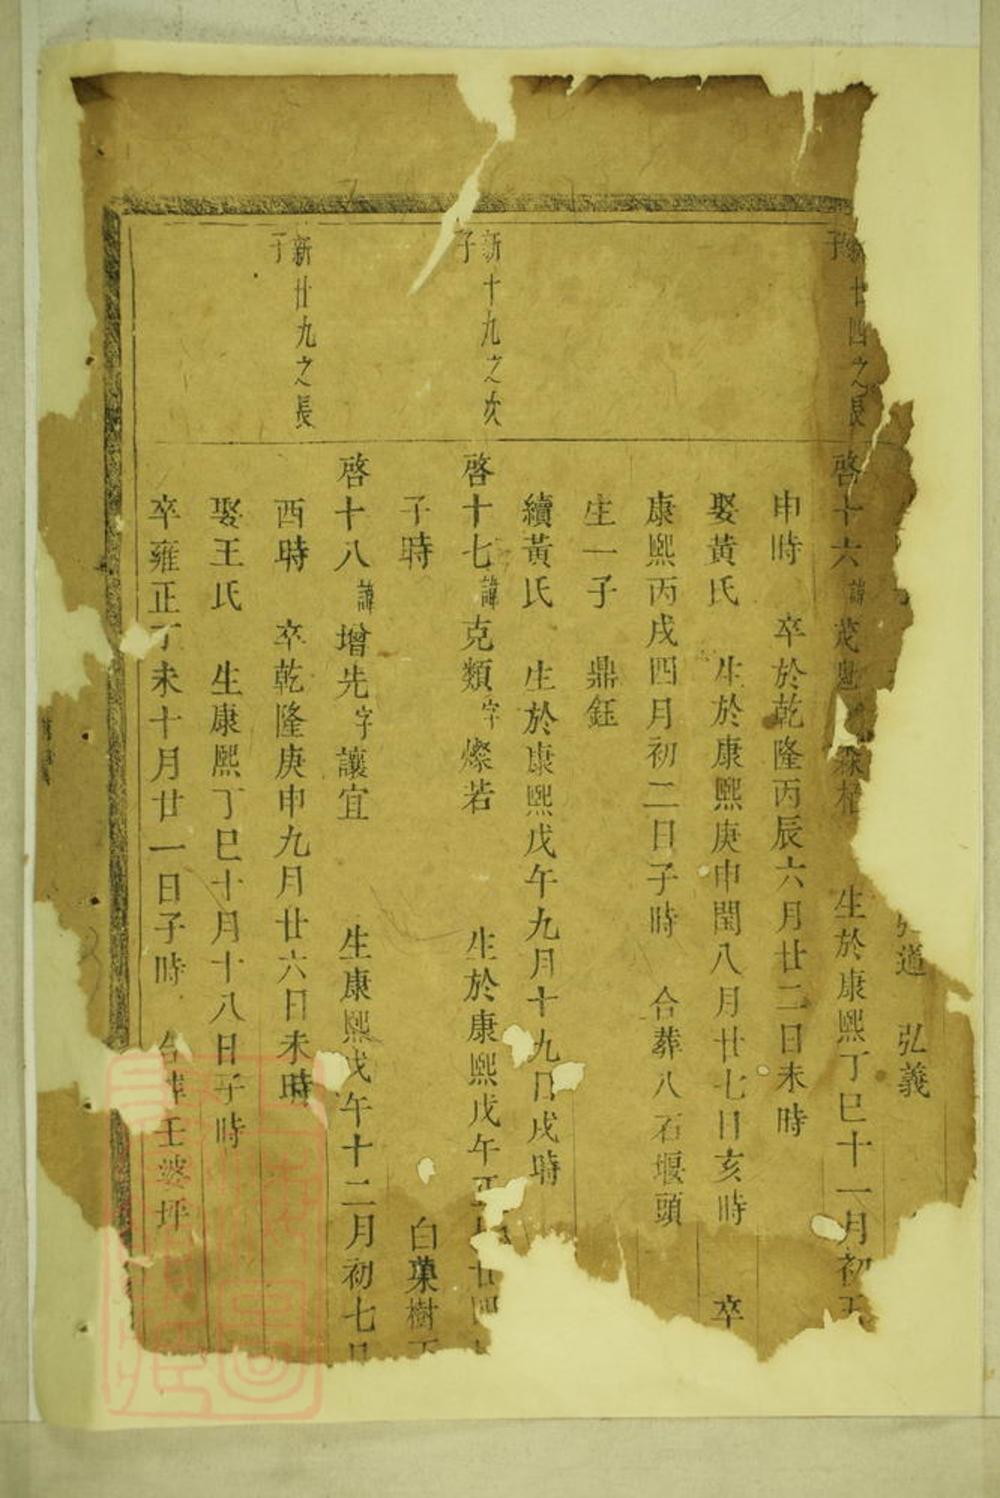 道 弘義
新十四之長
子
啓十六諱茂 生於康熙丁巳十一月初五
申時 卒於乾隆丙辰六月廿二日未時
娶黃氏 生於康熙庚申閏八月廿七日亥時 卒
康熙丙戌四月初二日子時 合葬八石堰頭
生一子 鼎鈺
續黃氏 生於康熙戊午九月十九日戌時
新十九之次
子
啓十七諱克類字燦若 生於康熙戊午正月廿四
子時 白菓樹下
啓十八諱增先字讓宜 生康熙戊午十二月初七日
新廿九之長
子
酉時 卒乾隆庚申九月廿六日未時
娶王氏 生康熙丁巳十月十八日子時
卒雍正丁未十月廿一日子時 合葬王婆坪